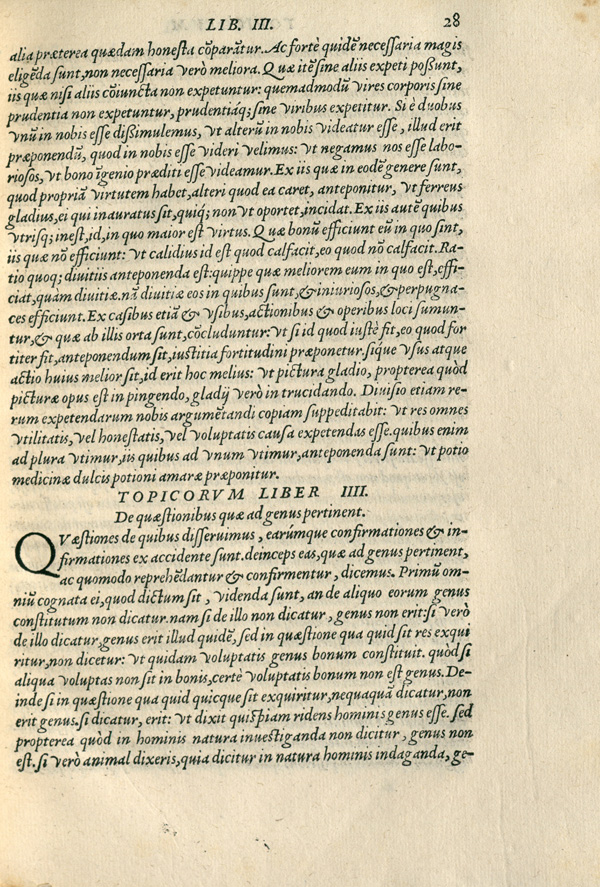 LIB. III. 28
alia præterea quædam honesta cõparãtur. Ac fortè quidẽ necessaria magis
eligẽda sunt, non necessaria verò meliora. Quæ itẽ sine aliis expeti possunt,
iis quæ nisi aliis cõiuncta non expetuntur: quemadmodũ vires corporis sine
prudentia non expetuntur, prudentiáq; sine viribus expetitur. Si è duobus
vnũ in nobis esse dissimulemus, vt alterũ in nobis videatur esse, illud erit
præponendũ, quod in nobis esse videri velimus: vt negamus nos esse labo-
riosos, vt bono ĩgenio præditi esse videamur. Ex iis quæ in eodẽ genere sunt,
quod propriã virtutem habet, alteri quod ea caret, anteponitur, vt ferreus
gladius, ei qui inauratus sit, quiq; non vt oportet, incidat. Ex iis autẽ quibus
vtrisq; inest, id, in quo maior est virtus. Quæ bonũ efficiunt eũ in quo sint,
iis quæ nõ efficiunt: vt calidius id est quod calfacit, eo quod nõ calfacit. Ra-
tio quoq; diuitiis anteponenda est: quippe quæ meliorem eum in quo est, effi-
ciat, quàm diuitiæ. nã diuitiæ eos in quibus sunt, & iniuriosos, & perpugna-
ces efficiunt. Ex casibus etiã & vsibus, actionibus & operibus loci sumun-
tur, & quæ ab illis orta sunt, cõcluduntur: vt si id quod iustè fit, eo quod for
titer fit, anteponendum sit, iustitia fortitudini præponetur. sique vsus atque
actio huius melior sit, id erit hoc melius: vt pictura gladio, propterea quòd
picturæ opus est in pingendo, gladij verò in trucidando. Diuisio etiam re-
rum expetendarum nobis argumẽtandi copiam suppeditabit: vt res omnes
vtilitatis, vel honestatis, vel voluptatis causa expetendas esse. quibus enim
ad plura vtimur, iis quibus ad vnum vtimur, anteponenda sunt: vt potio
medicinæ dulcis potioni amaræ præponitur.
TOPICORVM LIBER IIII.
De quæstionibus quæ ad genus pertinent.
QVæstiones de quibus disseruimus, earúmque confirmationes & in-
firmationes ex accidente sunt. deinceps eas, quæ ad genus pertinent,
ac quomodo reprehẽdantur & confirmentur, dicemus. Primũ om-
niũ cognata ei, quod dictum sit, videnda sunt, an de aliquo eorum genus
constitutum non dicatur. nam si de illo non dicatur, genus non erit: si verò
de illo dicatur, genus erit illud quidẽ, sed in quæstione qua quid sit res exqui
ritur, non dicetur: vt quidam voluptatis genus bonum constituit. quòd si
aliqua voluptas non sit in bonis, certè voluptatis bonum non est genus. De-
inde si in quæstione qua quid quicque sit exquiritur, nequaquã dicatur, non
erit genus. si dicatur, erit: vt dixit quispiam ridens hominis genus esse. sed
propterea quòd in hominis natura inuestiganda non dicitur, genus non
est. si verò animal dixeris, quia dicitur in natura hominis indaganda, ge-